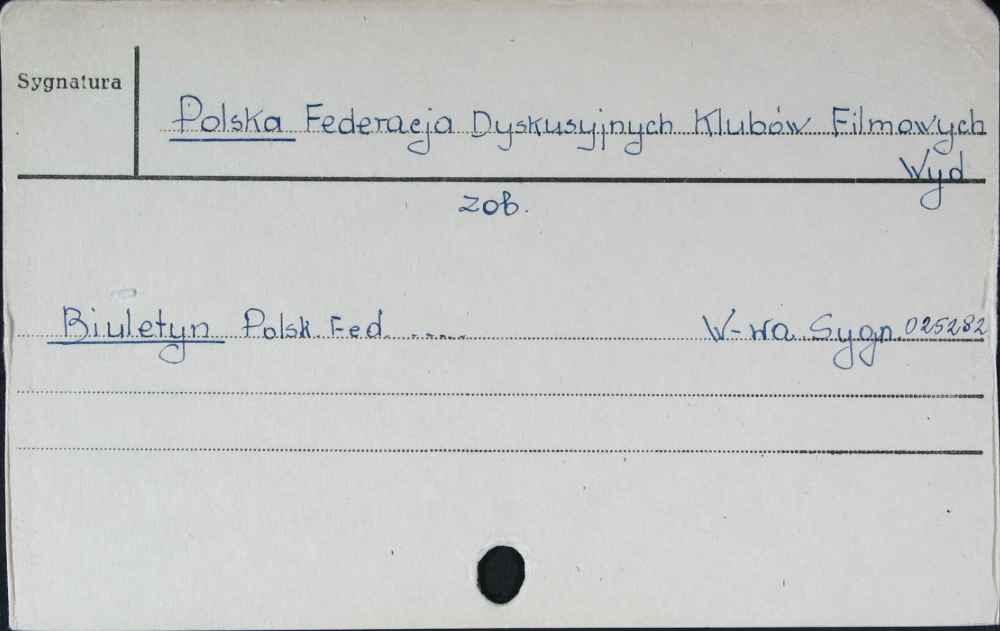 Sygnatura
Polska Federacja Dyskusyjnych Klubów Filmowych
Wyd
zob.
Biuletyn Polsk. Fed. ..... W-wa Sygn. 025282